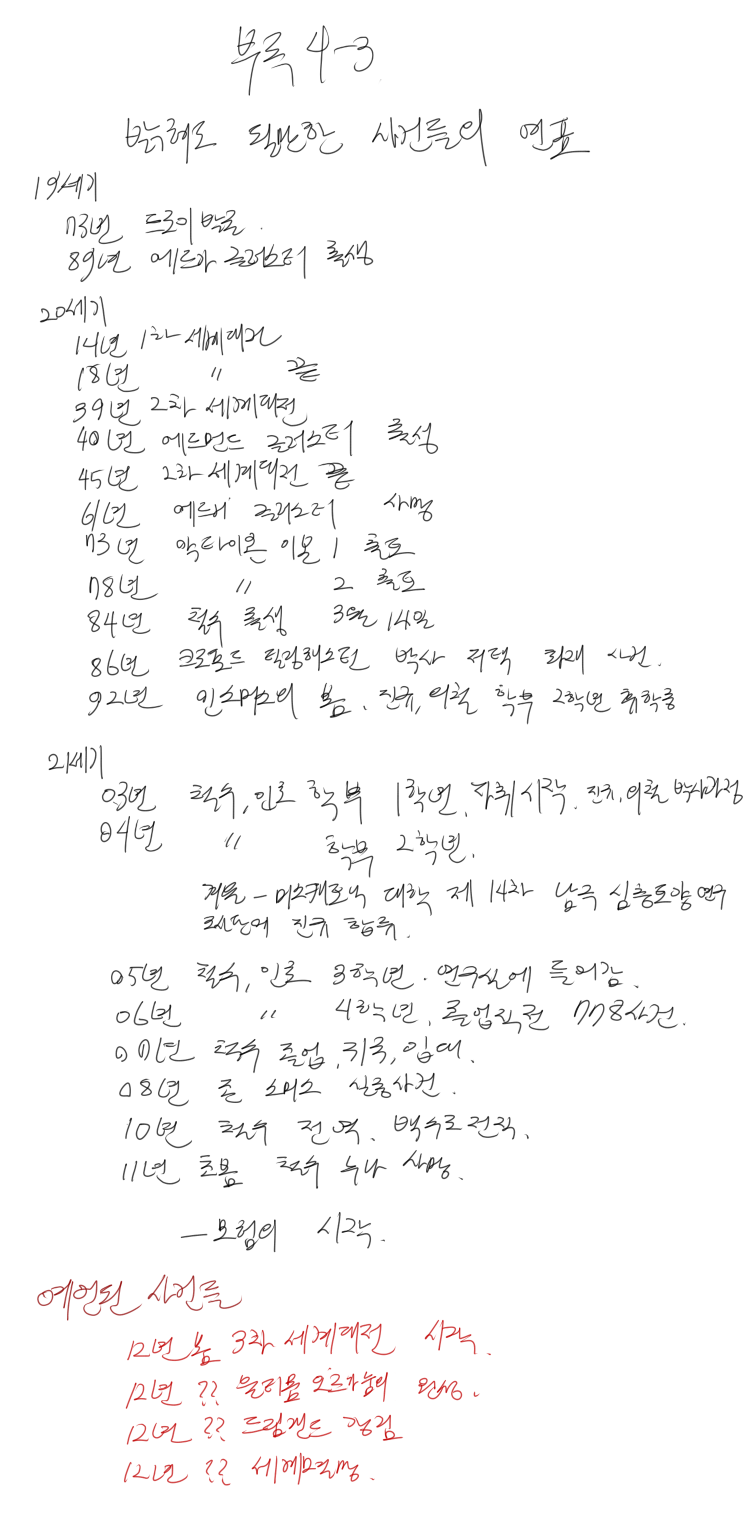 부록 4-3
밝혀도 될만한 사건들의 연표
19세기
73년 트로이 발굴.
89년 에드가 글러스터 출생
20세기
14년 1차 세계대전
18년 〃 끝
39년 2차 세계대전
40년 에드먼드 글러스터 출생
45년 2차 세계대전 끝
61년 글러스터 사망
73년 악타이온 이본 1 출토
78년 〃 2 출토
84년 철수 출생 3월 14일
86년 크로포드 틸링해스턴 박사 저택 화재 사건.
92년 인스머스의 봄. 진규, 의철 학부 2학년 휴학중
21세기
03년 철수, 인호 학부 1학년. 자취시작. 진규, 의철 박사과정
04년 〃 학부 2학년.
겨울 - 미스캐토닉 대학 제 14차 남극 심층토양연구
조사단에 진규 합류.
05년 철수, 인호 3학년. 연구실에 들어감.
06년 〃 4학년. 졸업직전 778사건.
07년 철수 졸업, 귀국, 입대.
08년 존 스미스 실종사건.
10년 철수 전역. 백수로 전직.
11년 초봄 철수 누나 사망.
- 모험의 시작.
예언된 사건들
12년 봄 3차 세계대전 시작.
12년 ?? 물리움 오르가눔의 완성.
12년 ?? 드림랜드 강림
12년 ?? 세계멸망.